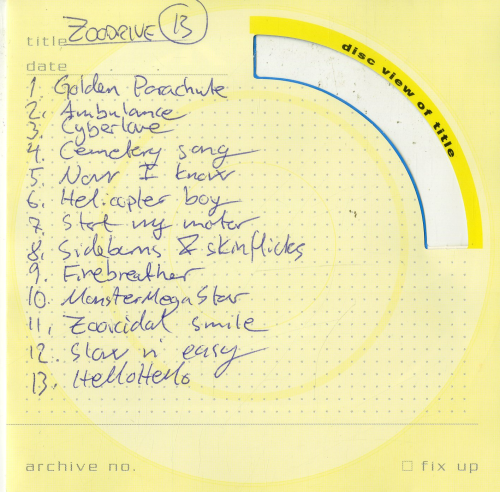 title ZOODRIVE 13
disc view of title
date
1. Golden Parachute
2. Ambulance
3. Cyberlove
4. Cemetery song
5. Now I know
6. Helicopter boy
7. Start my motor
8. Sideburns & skinflicks
9. Firebreather
10. MonsterMegaStar
11. Zoovcidal smile
12. Slow n' easy
13. HelloHello
archive no.
fix up